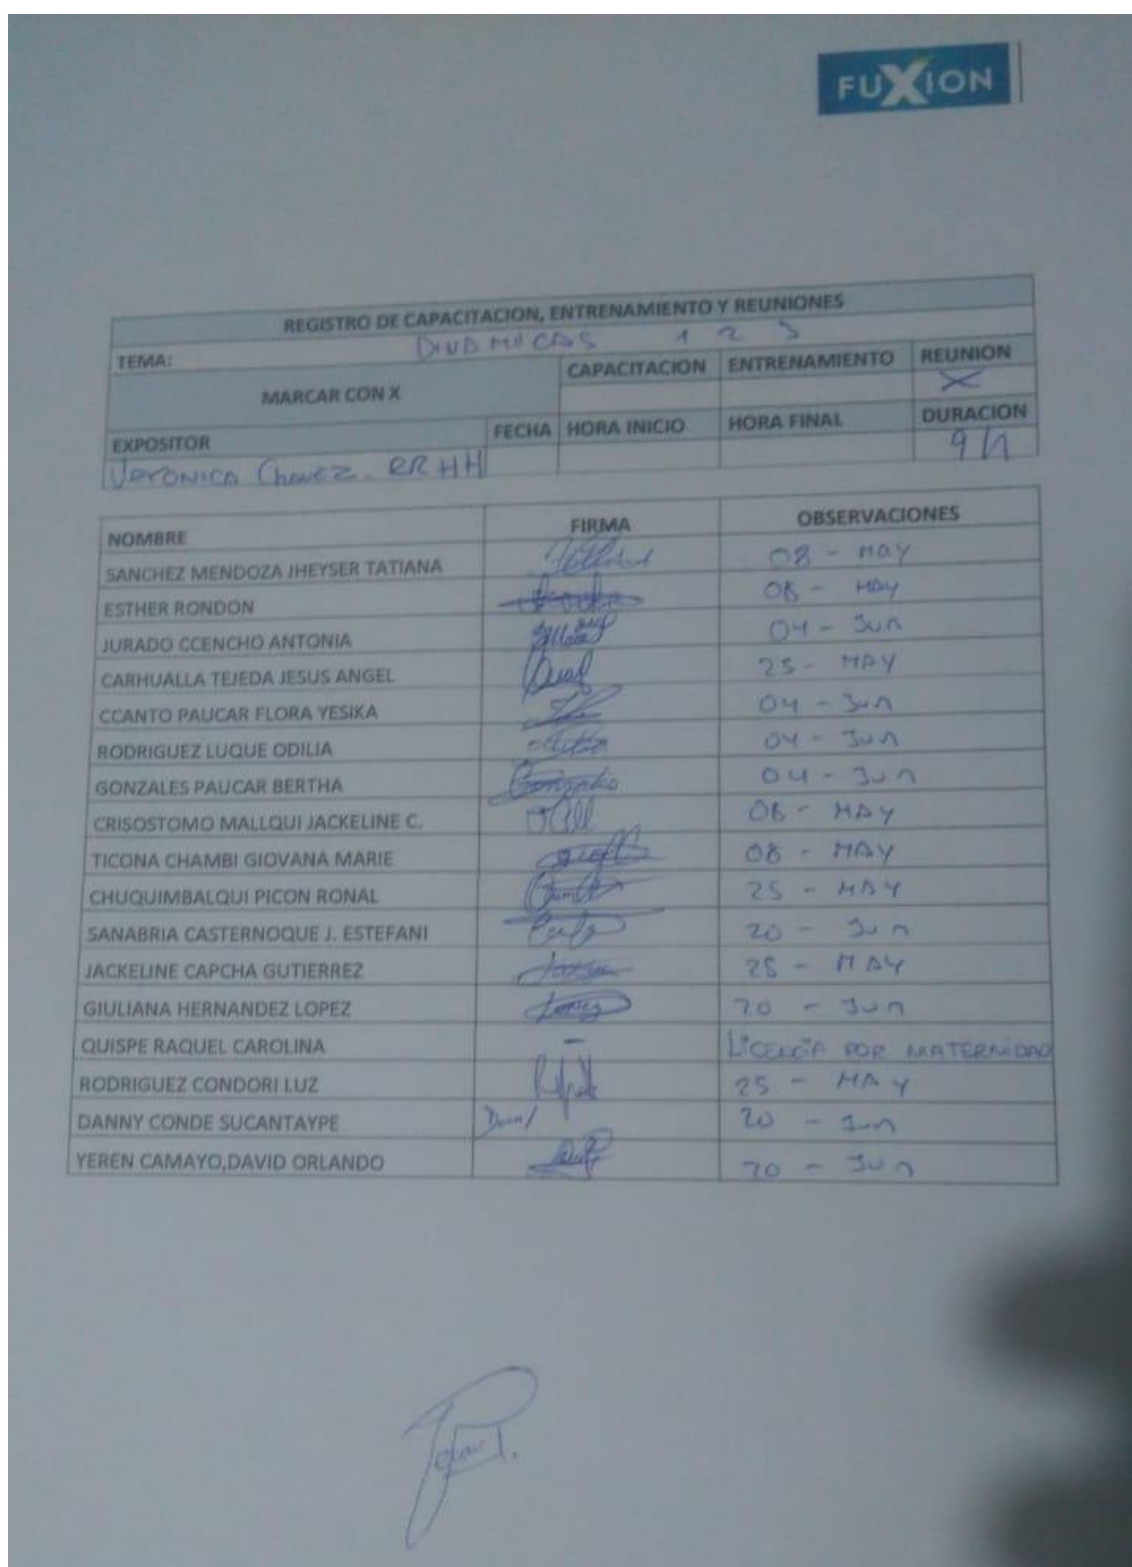 FUXION
REGISTRO DE CAPACITACION, ENTRENAMIENTO Y REUNIONES
TEMA: DINAMICAS 1 2 3
MARCAR CON X CAPACITACION ENTRENAMIENTO REUNION
X
EXPOSITOR FECHA HORA INICIO HORA FINAL DURACION
Veronica Chavez. RRHH 9 h
NOMBRE FIRMA OBSERVACIONES
SANCHEZ MENDOZA JHEYSER TATIANA 08 - MAY
ESTHER RONDON 08 - MAY
JURADO CCENCHO ANTONIA 04 - Jun
CARHUALLA TEJEDA JESUS ANGEL 25 - MAY
CCANTO PAUCAR FLORA YESIKA 04 - Jun
RODRIGUEZ LUQUE ODILIA 04 - Jun
GONZALES PAUCAR BERTHA 04 - Jun
CRISOSTOMO MALLQUI JACKELINE C. 08 - MAY
TICONA CHAMBI GIOVANA MARIE 08 - MAY
CHUQUIMBALQUI PICON RONAL 25 - MAY
SANABRIA CASTERNOQUE J. ESTEFANI 20 - Jun
JACKELINE CAPCHA GUTIERREZ 25 - MAY
GIULIANA HERNANDEZ LOPEZ 20 - Jun
QUISPE RAQUEL CAROLINA - LICENCIA POR MATERNIDAD
RODRIGUEZ CONDORI LUZ 25 - MAY
DANNY CONDE SUCANTAYPE 20 - Jun
YEREN CAMAYO,DAVID ORLANDO 20 - Jun